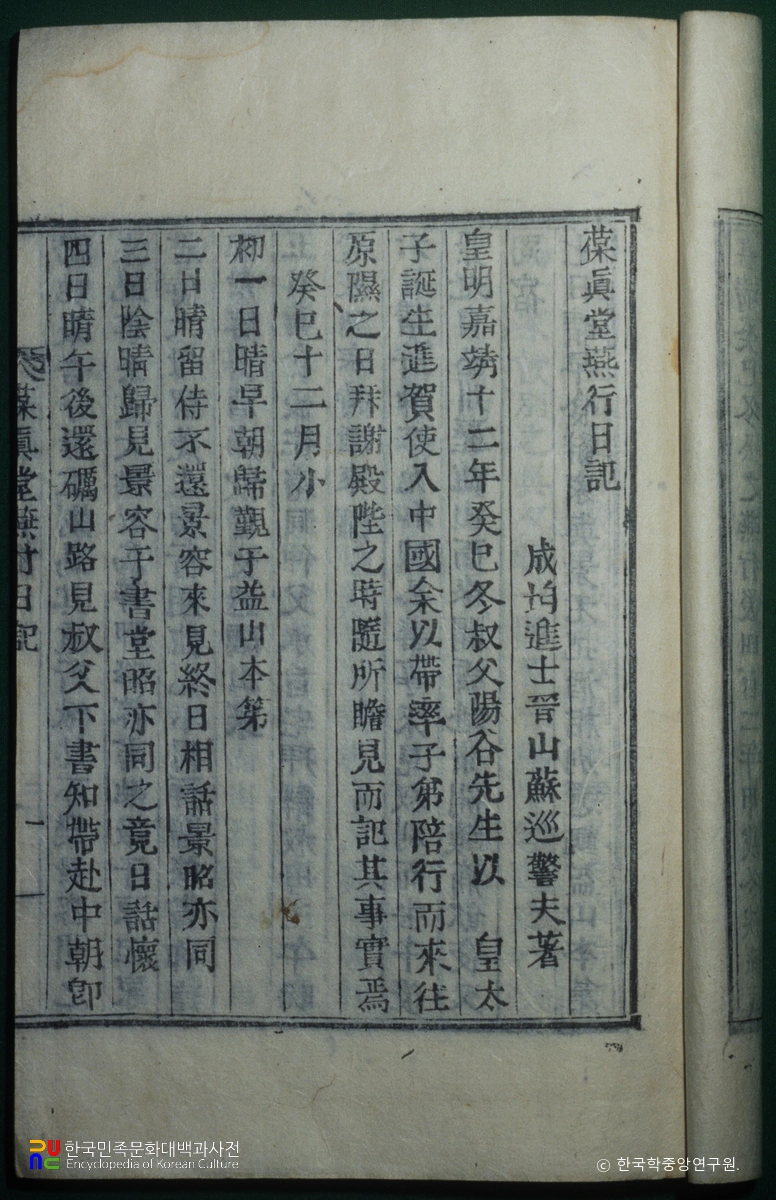 葆眞堂燕行日記
成均進士晉山蘇巡警夫著
皇明嘉靖十二年癸巳冬叔父陽谷先生以 皇太
子誕生進賀使入中國余以帶率子弟陪行而來往
原隰之日拜謝殿陛之時隨所瞻見而記其事實焉
癸巳十二月小
初一日晴早朝歸覲于益山本第
二日晴留侍不還景容來見終日相話景昭亦同
三日陰晴歸見景容于書堂昭亦同之竟日話懷
四日晴午後還礪山路見叔父下書知帶赴中朝卽
葆眞堂燕行日記 一
한국민족문화대백과사전
Encyclopedia of Korean Culture
© 한국학중앙연구원.